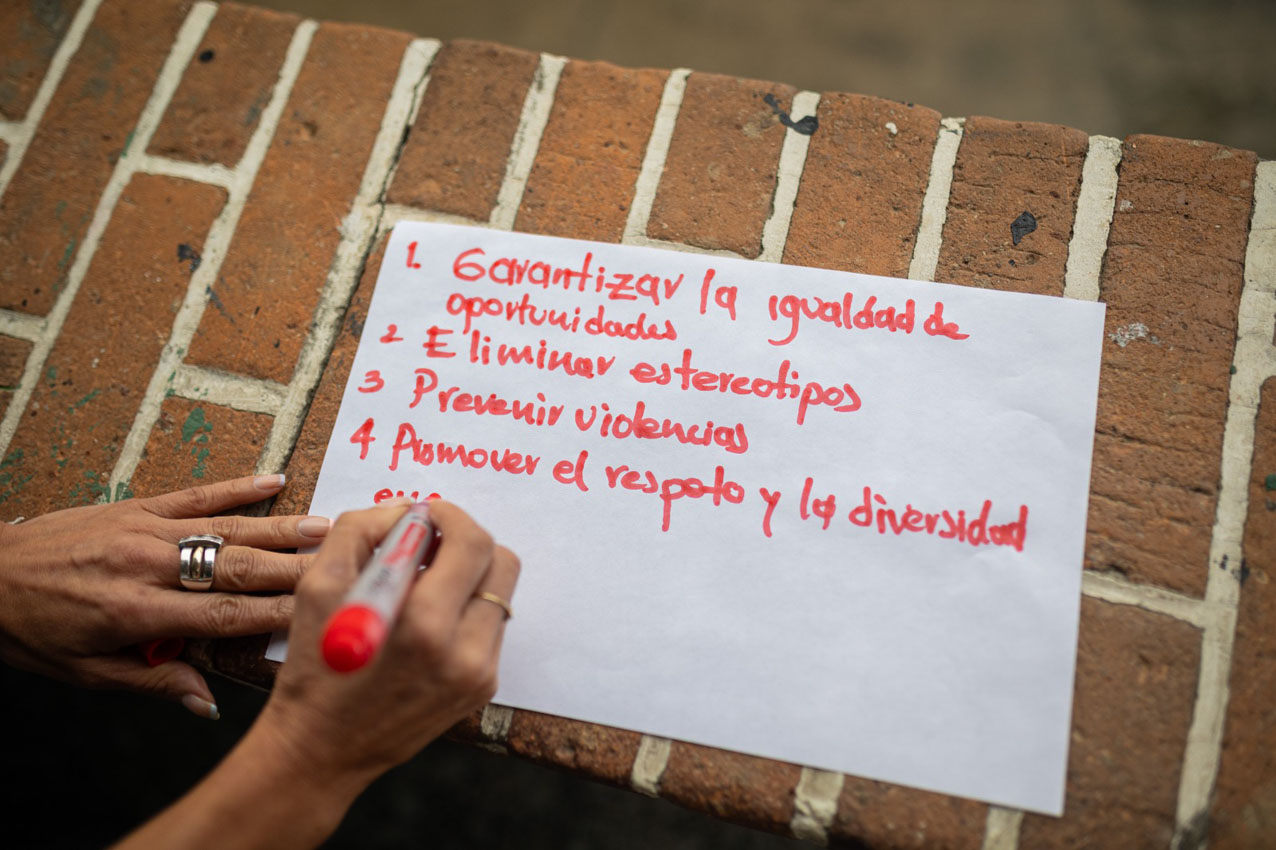 1. Garantizar la igualdad de
oportunidades
2 Eliminar estereotipos
3 Prevenir violencias
4 Promover el respeto y la diversidad